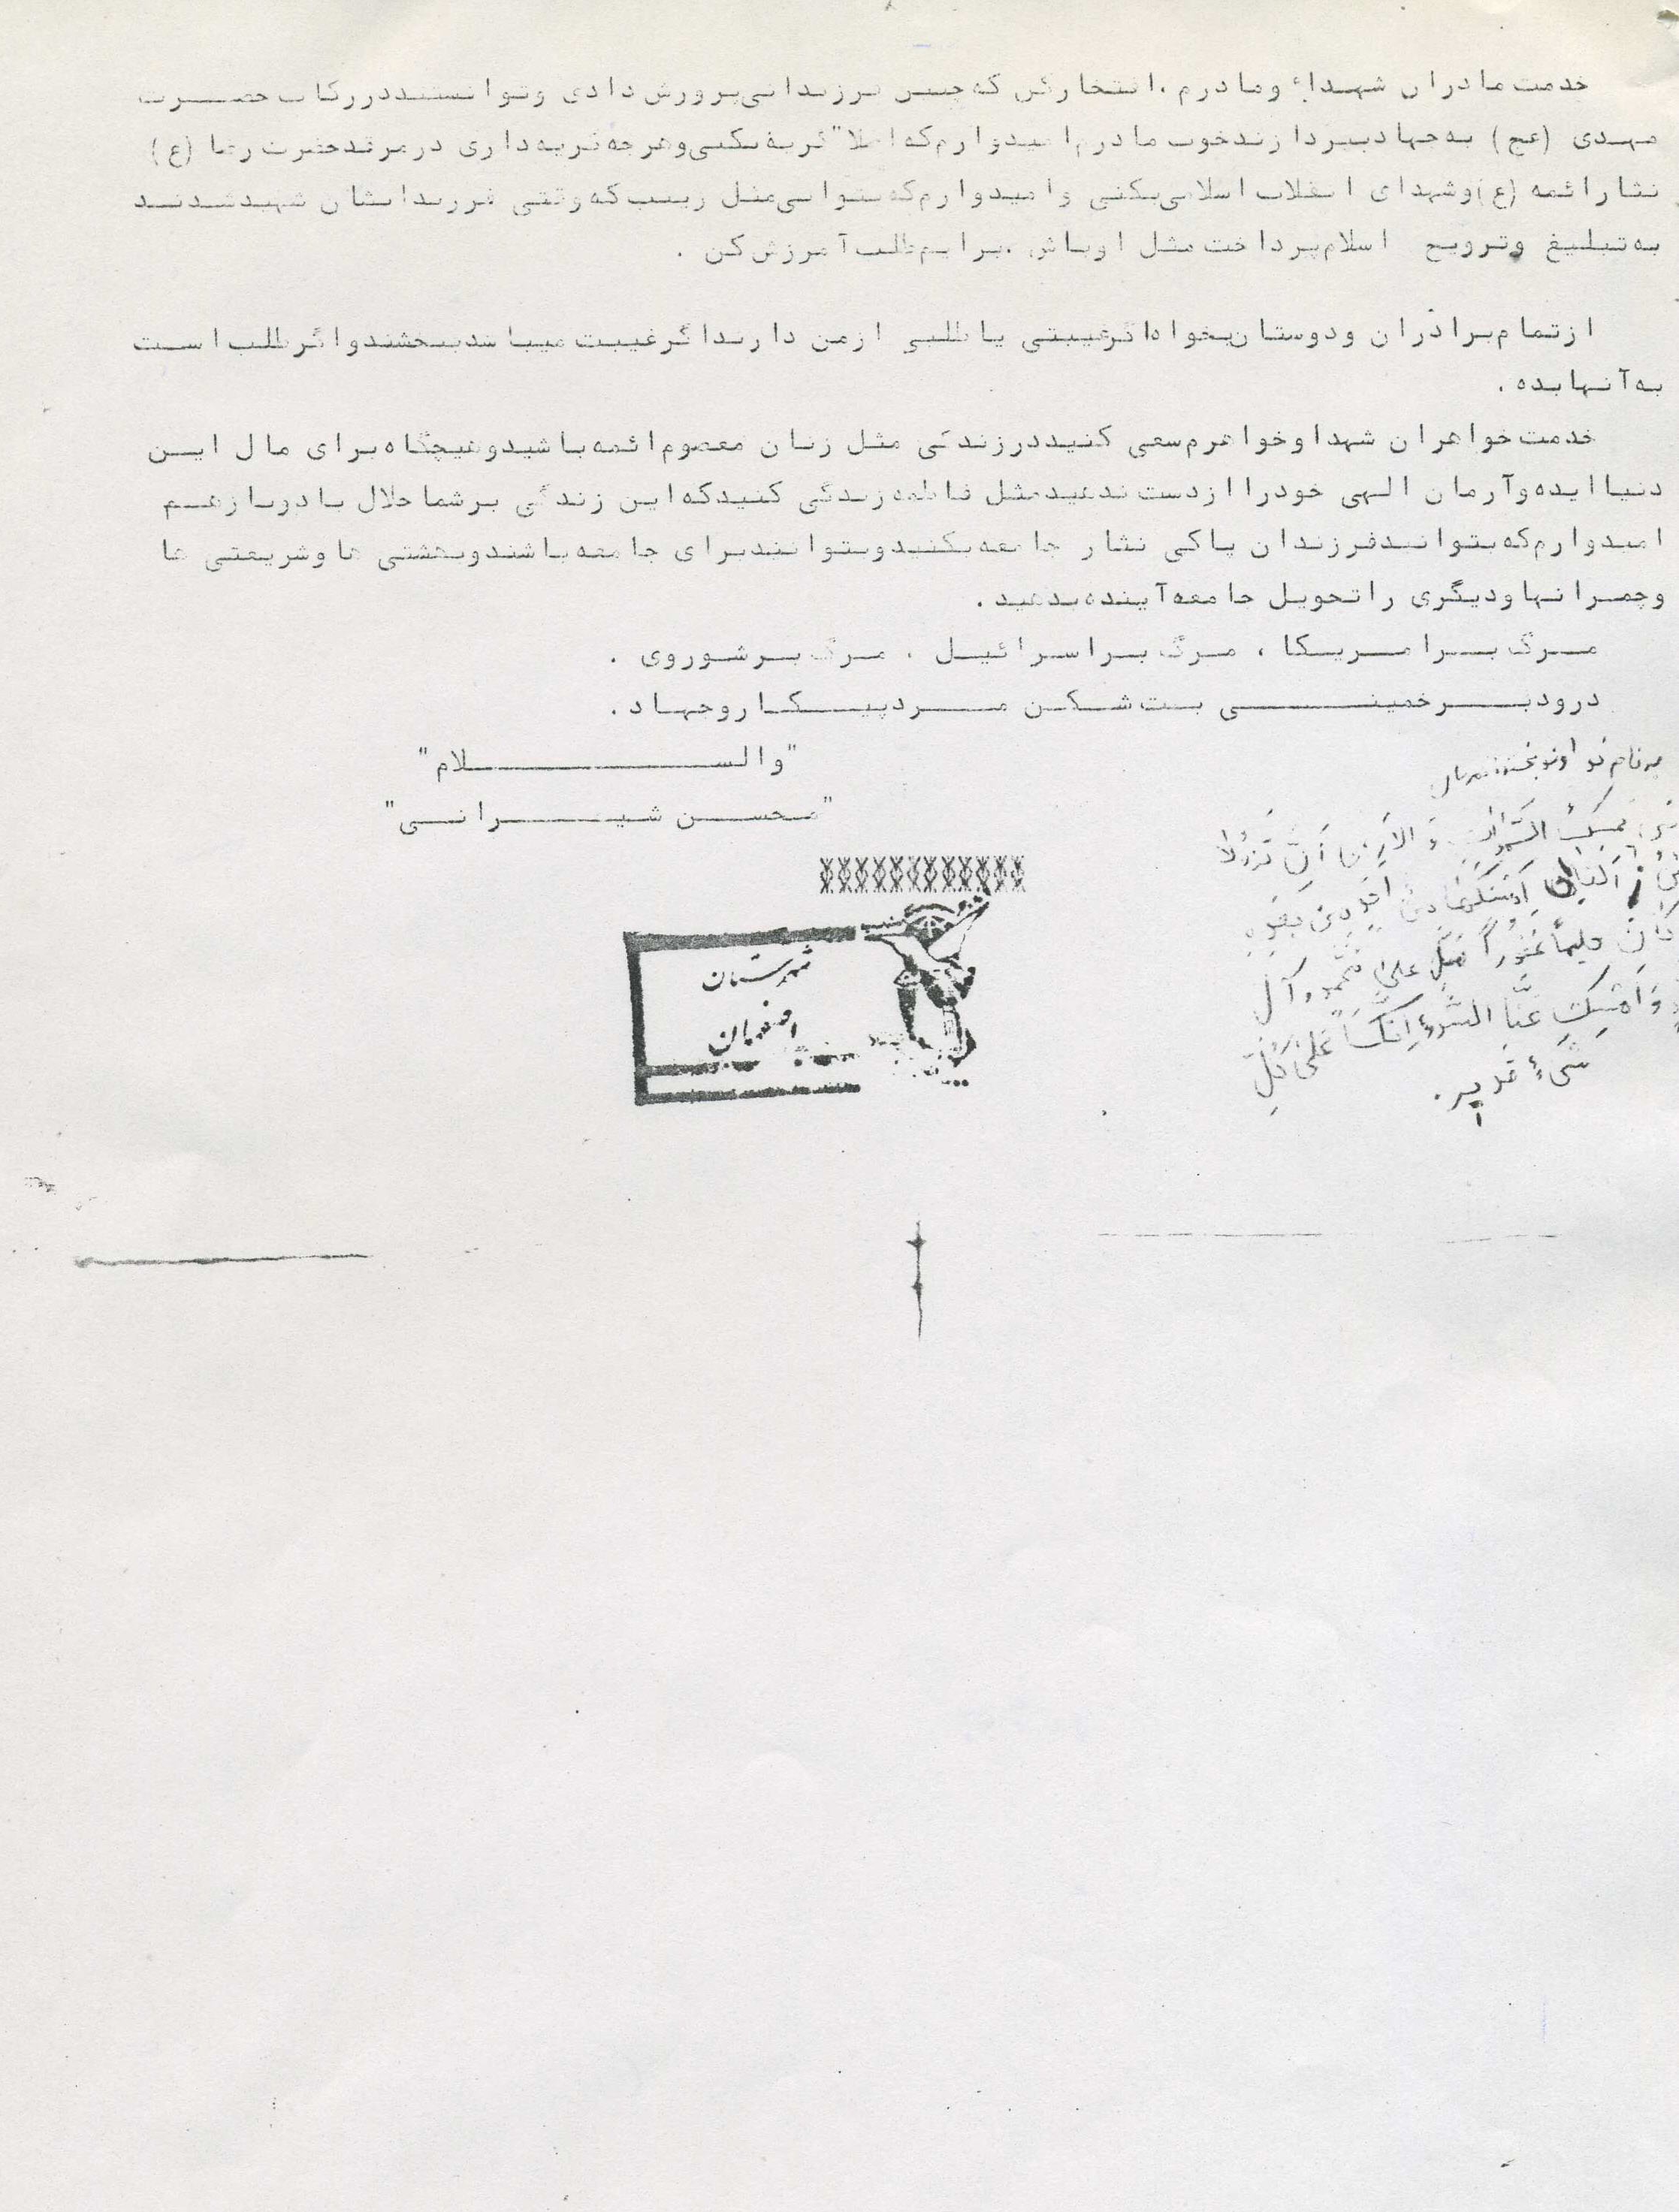 خدمت مادران شهداء ومادرم .افتخارکن که چنین فرزندانی‌پرورش دادی وتوانستنددررکاب حضرت
مهدی (عج) به‌جهادبپردازندخوب مادرم امیدوارم‌که اصلا" گریه نکنی‌وهرچه گریه‌داری درمرقدحضرت رضا (ع)
نثارائمه (ع)وشهدای انقلاب اسلامی‌بکنی وامیدوارم‌که بتوانی‌مثل زینب که وقتی فرزندانشان شهیدشدند
به‌تبلیغ وترویج اسلام‌پرداخت مثل اوباش .برایم‌طلب آمرزش‌کن .
ازتمام‌برادران ودوستان‌بخواه‌اگرغیبتی یا طلبی ازمن دارنداگرغیبت میباشدببخشندواگرطلب‌است
به‌آنهابده .
خدمت‌خواهران شهداوخواهرم‌سعی کنیددرزندگی مثل زنان معصوم‌ائمه‌باشیدوهیچگاه‌برای مال این
دنیاایده‌وآرمان الهی خودراازدست ندهیدمثل فاطمه‌زندگی کنیدکه‌این زندگی برشماحلال بادوبازهم
امیدوارم‌که‌بتوانیدفرزندان پاکی نثار جامعه‌بکنیدوبتوانندبرای جامعه‌باشندوبهشتی هاوشریعتی ها
وچمرانهاودیگری راتحویل جامعه‌آینده‌بدهید .
مرگ برامریکا ، مرگ براسرائیل ، مرگ برشوروی .
درودبرخمینی بت‌شکن مردپیکاروجهاد .
"والسلام"
"محسن شیرانی"
شهرستان
اصفهان
السَّمواتِ وَ الاَرضَ اَن تَزُولا
اَمسَکَهُما مِن اَحَدٍ مِن بَعدِهِ
کانَ حلیماً غَفُوراً صَلِّ عَلی مُحَمَّد وَ آل
وَ اَمْسِک عَنَّا السُّوءَ اِنَّکَ عَلی کُلِّ
شَیءٍ قدیر .